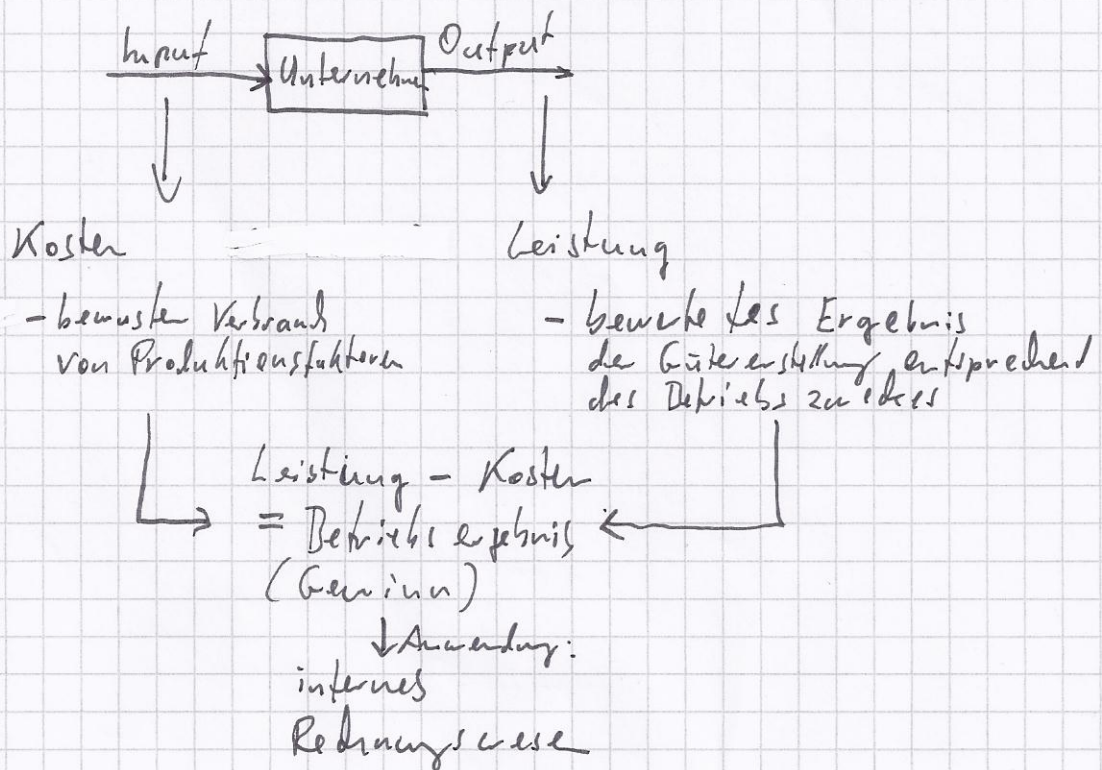 Input
Unternehmen
Output
Kosten
Leistung
- bewusten Verbrauch
von Produktionsfaktoren
- bewertetes Ergebnis
der Gütererstellung entsprechend
des Betriebszweckes
Leistung - Kosten
= Betriebsergebnis
(Gewinn)
Anwendung:
internes
Rechnungswesen